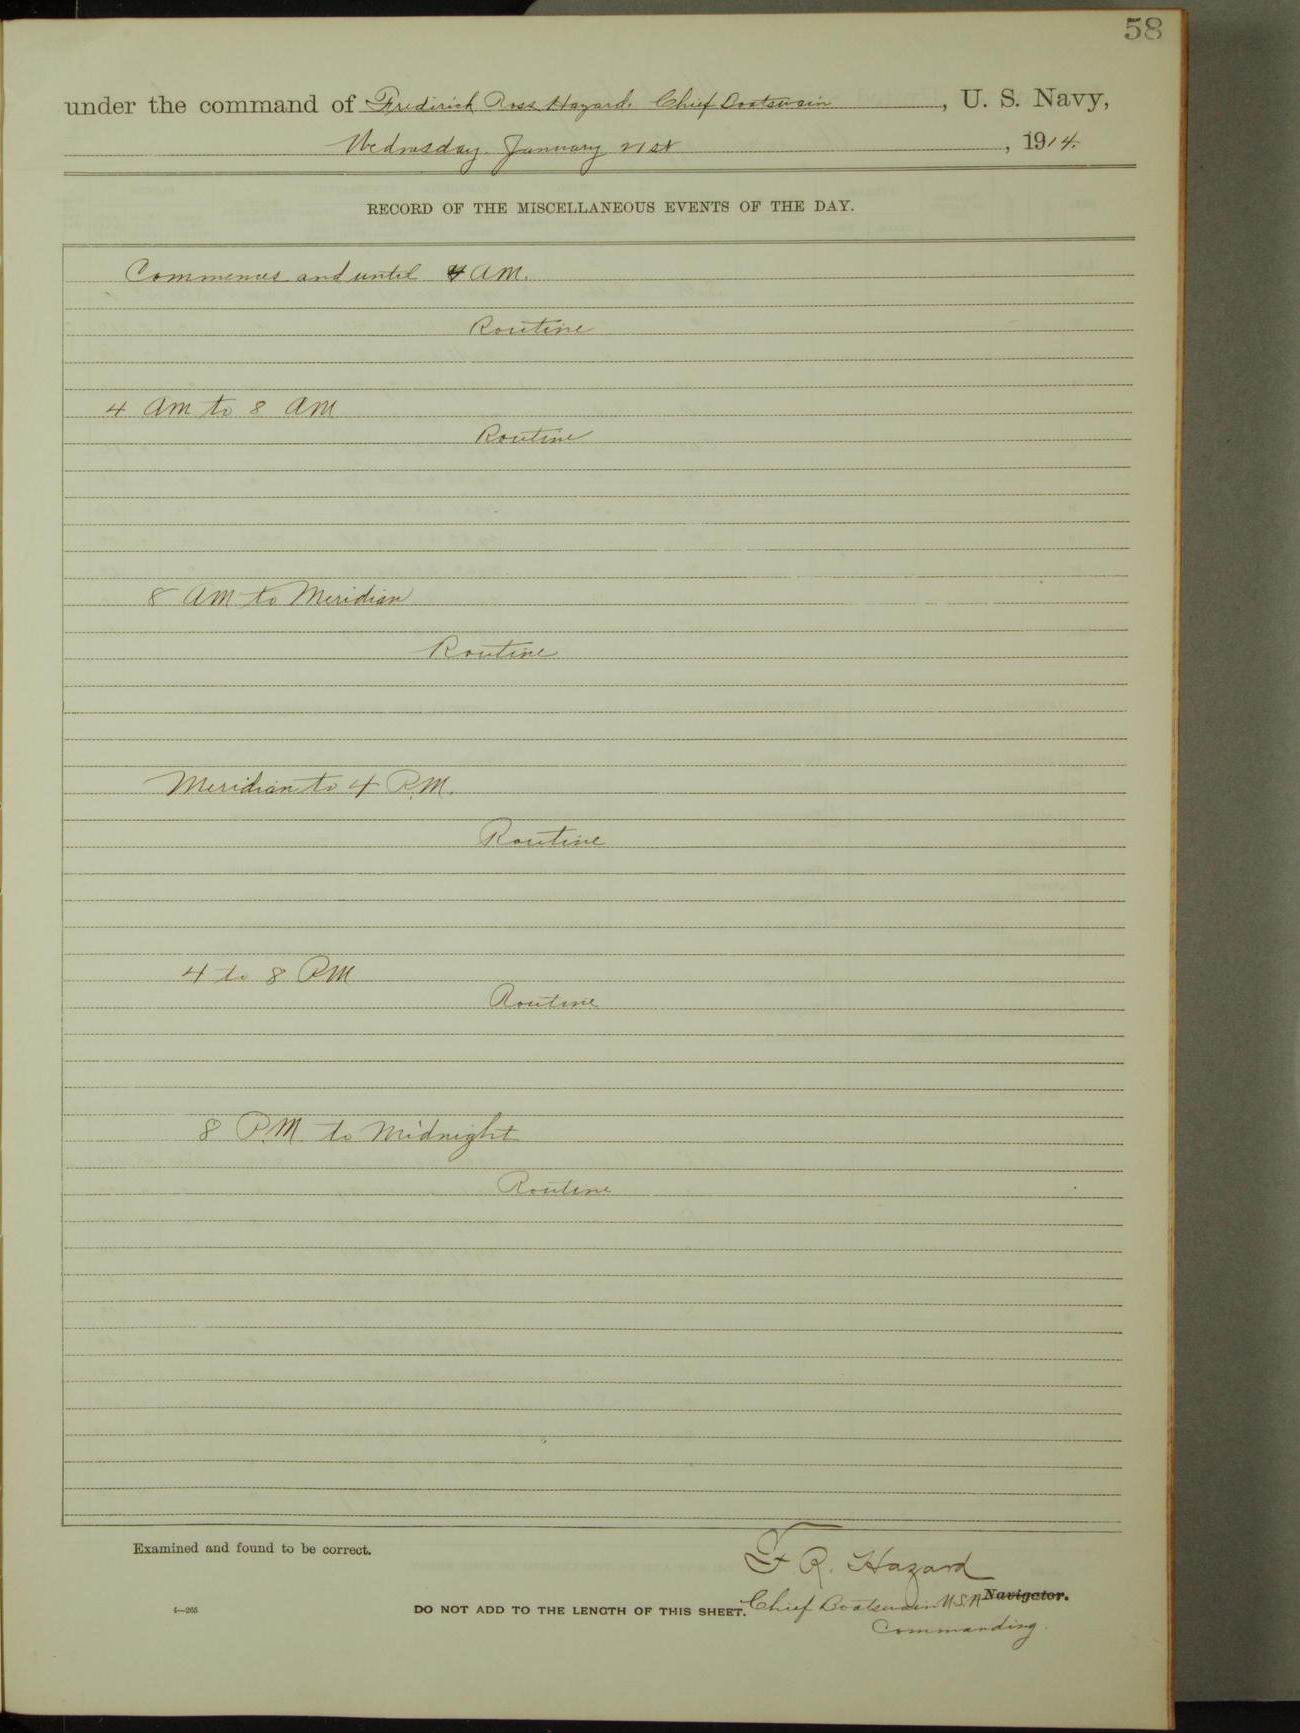 58
under the command of Fredirick Ross Hazard, Chief Boatswain, U. S. Navy,
Wednesday January 21st, 1914.
RECORD OF THE MISCELLANEOUS EVENTS OF THE DAY.
Commences and until 4 AM.
Routine
4 AM to 8 AM
Routine
8 AM to Meridian
Routine
Meridian to 4 P.M.
Routine
4 to 8 PM
Routine
8 P.M. to Midnight
Routine
Examined and found to be correct.
F R. Hazard
Chief Boatswain U.S.N Navigator.
4—265
DO NOT ADD TO THE LENGTH OF THIS SHEET.
Commanding.